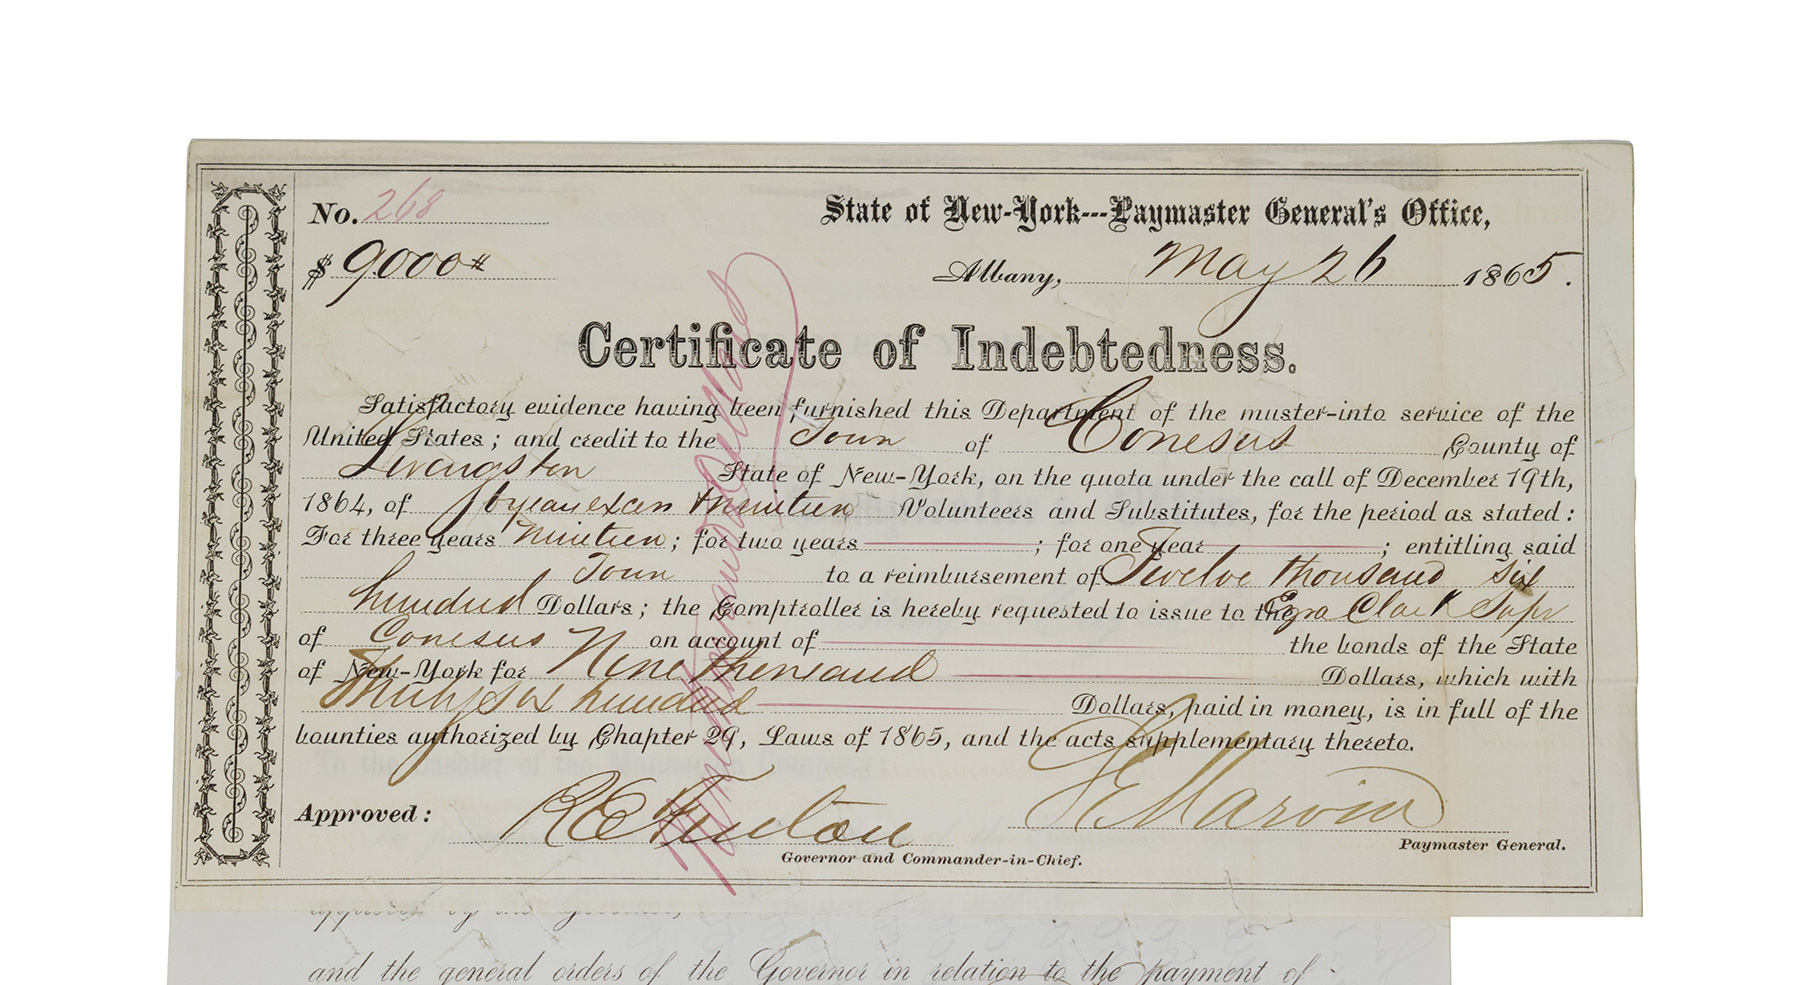 No. 268
State of New-York---Paymaster General's Office,
$ 9.000
Albany, May 26 1865.
Certificate of Indebtedness.
Satisfactory evidence having been furnished this Department of the muster-into service of the
United States; and credit to the Town of Conesus County of
Livingston State of New-York, on the quota under the call of December 19th,
1864, of nineteen Volunteers and Substitutes, for the period as stated:
For three years Nineteen; for two years ; for one year ; entitling said
Town to a reimbursement of Twelve thousand six
hundred Dollars; the Comptroller is hereby requested to issue to the Ezra Clark Supr
of Conesus on account of the bonds of the State
of New-York for Nine thousand Dollars, which with
Thirty six hundred Dollars, paid in money, is in full of the
bounties authorized by Chapter 29, Laws of 1865, and the acts supplementary thereto.
Approved: R E Fenton
Marvin
Governor and Commander-in-Chief.
Paymaster General.
and the general orders of the Governor in relation to the payment of